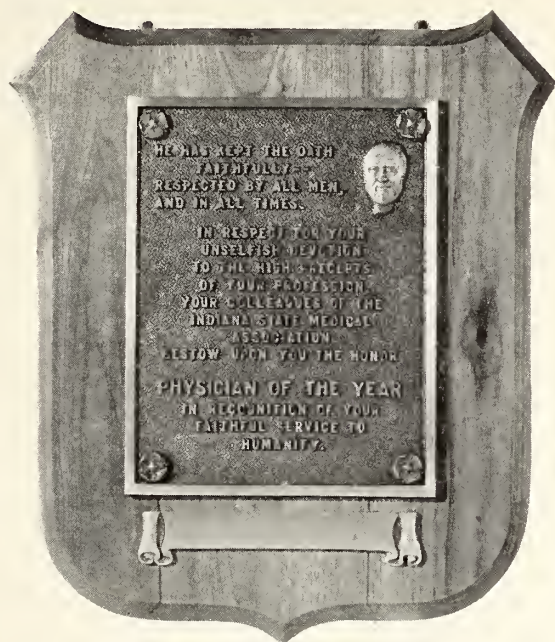 HE HAS KEPT THE OATH
FAITHFULLY--
RESPECTED BY ALL MEN,
AND IN ALL TIMES.
IN RESPECT FOR YOUR
UNSELFISH DEVOTION
TO THE HIGH PRECEPTS
OF YOUR PROFESSION
YOUR COLLEAGUES OF THE
INDIANA STATE MEDICAL
ASSOCIATION
BESTOW UPON YOU THE HONOR
PHYSICIAN OF THE YEAR
IN RECOGNITION OF YOUR
FAITHFUL SERVICE TO
HUMANITY.